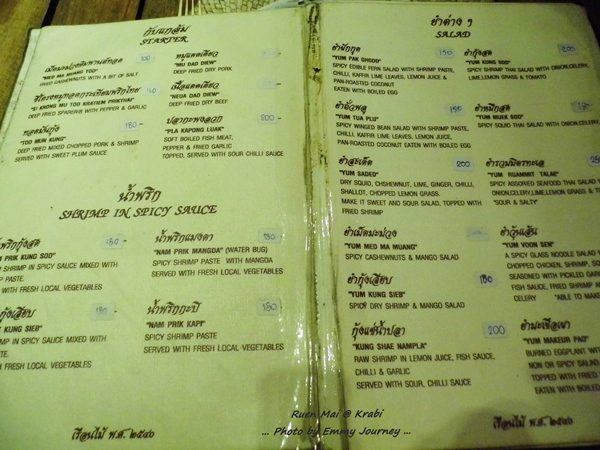 กับแกล้ม
STARTER
เม็ดมะม่วงหิมพานต์ทอด 100
"MED MA MUANG TOD"
FRIED CASHEWNUTS WITH A BIT OF SALT
ซี่โครงหมูทอดกระเทียมพริกไทย
"SI KRONG MU TOD KRATIEM PRIKTHAI"
FRIED SPARERIB WITH PEPPER & GARLIC
ทอดมันกุ้ง 180.-
"TOD MUN KUNG"
DEEP FRIED MIXED CHOPPED PORK & SHRIMP
SERVED WITH SWEET PLUM SAUCE
หมูแดดเดียว
"MU DAD DIEW"
DEEP FRIED DRY PORK
เนื้อแดดเดียว
"NEUA DAD DIEW"
DEEP FRIED DRY BEEF
ปลากะพงลวก 200.-
"PLA KAPONG LUAK"
SOFT BOILED FISH MEAT,
PEPPER & FRIED GARLIC
TOPPED, SERVED WITH SOUR CHILLI SAUCE
น้ำพริก
SHRIMP IN SPICY SAUCE
น้ำพริกกุ้งสด 180.-
PRIK KUNG SOD"
SHRIMP IN SPICY SAUCE MIXED WITH
PASTE.
WITH FRESH LOCAL VEGETABLES
กุ้งเสียบ 180.-
KUNG SIEB"
SHRIMP IN SPICY SAUCE MIXED WITH
PASTE
WITH FRESH LOCAL VEGETABLES
น้ำพริกแมงดา 180
"NAM PRIK MANGDA" (WATER BUG)
SPICY SHRIMP PASTE WITH MANGDA
SERVED WITH FRESH LOCAL VEGETABLES
น้ำพริกกะปิ
"NAM PRIK KAPI"
SPICY SHRIMP PASTE
SERVED WITH FRESH LOCAL VEGETABLES
เรือนไม้ พ.ศ. ๒๕๔๖
ยำต่าง ๆ
SALAD
ยำผักกูด 150
"YUM PAK GHOOD"
SPICY EDIBLE FERN SALAD WITH SHRIMP PASTE,
CHILLI, KAFFIR LIME LEAVES, LEMON JUICE &
PAN-ROASTED COCONUT
EATEN WITH BOILED EGG
ยำถั่วพลู 150
"YUM TUA PLU"
SPICY WINGED BEAN SALAD WITH SHRIMP PASTE,
CHILLI, KAFFIR LIME LEAVES, LEMON JUICE,
PAN-ROASTED COCONUT EATEN WITH BOILED EGG
ยำสะเด็ด 200
"YUM SADED"
DRY SQUID, CHSHEWNUT, LIME, GINGER, CHILLI,
SHALLOT, CHOPPED LEMON GRASS.
MAKE IT SWEET AND SOUR SALAD, TOPPED WITH
FRIED SHRIMP
ยำเม็ดมะม่วง 180
"YUM MED MA MUANG"
SPICY CASHEWNUTS & MANGO SALAD
ยำกุ้งเสียบ 180
"YUM KUNG SIEB"
SPICY DRY SHRIMP & MANGO SALAD
กุ้งแช่น้ำปลา 200
"KUNG SHAE NAMPLA"
RAW SHRIMP IN LEMON JUICE, FISH SAUCE,
CHILLI & GARLIC
SERVED WITH SOUR, CHILLI SAUCE
ยำกุ้งสด 200
"YUM KUNG SOD"
SPICY SHRIMP THAI SALAD WITH ONION,CELERY,
LIME,LEMON GRASS & TOMATO
ยำหมึกสด 180.-
"YUM MUEK SOD"
SPICY SQUID THAI SALAD WITH ONION,
ยำรวมมิตรทะเล
"YUM RUAMMIT TALAI"
SPICY ASSORED SEAFOOD THAI SALAD
ONION,CELERY,LIME,LEMON GRASS &
"SOUR & SALTY"
ยำวุ้นเส้น
"YUM VOON SEN"
A SPICY GLASS NOODLE SALAD
CHOPPED CHICKEN, SHRIMP,
SEASONED WITH PICKLED
FISH SAUCE, FRIED SHRIMP
CELERY "ABLE TO MAKE
ยำมะเขือเผา
"YUM MAKEUR PAO"
BURNED EGGPLANT
NON OR SPICY SALAD
TOPPED WITH FRIED
EATEN WITH BOILED
เรือนไม้ พ.ศ. ๒๕๔๖
Ruen Mai @ Krabi
... Photo by Emmy Journey ...